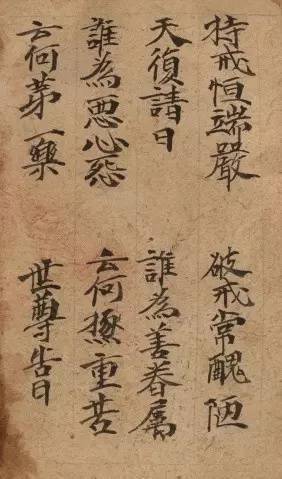 持戒恒端嚴 破戒常醜陋
天復請曰 誰為善眷屬
誰為悪心怨 云何極重苦
云何苐一樂 世尊告曰